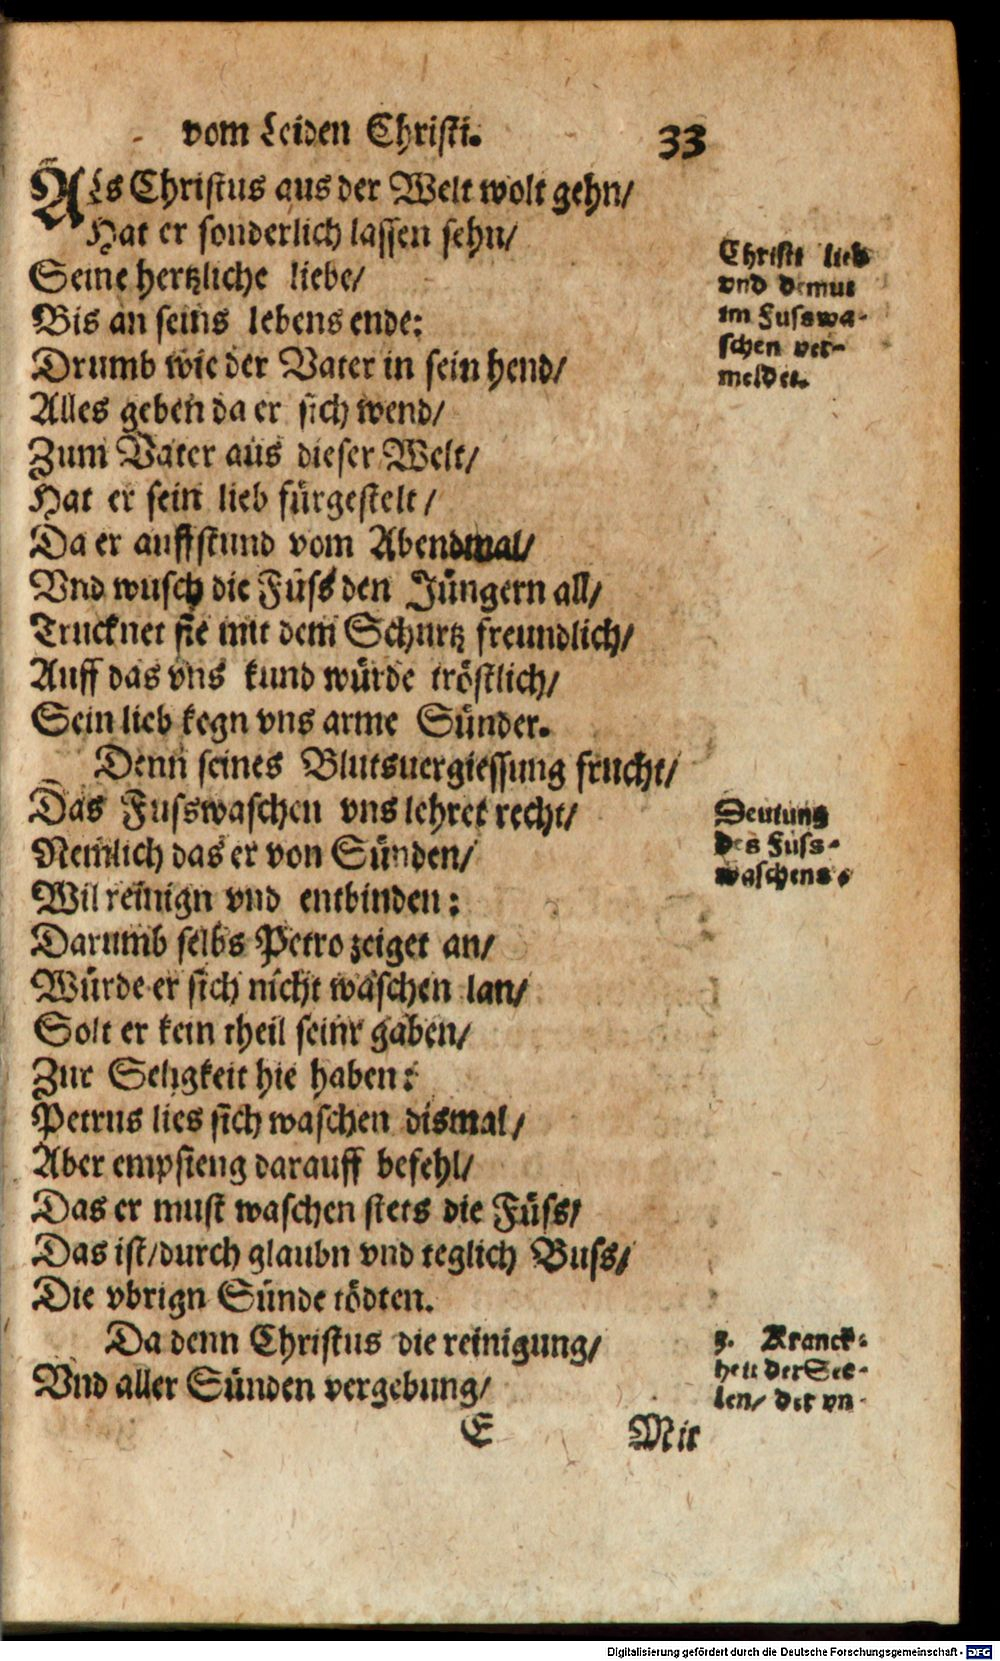 vom Leiden Christi. 33
ALs Christus aus der Welt wolt gehn/
Hat er sonderlich lassen sehn/
Seine hertzliche liebe/
Bis an seins lebens ende:
Drumb wie der Vater in sein hend/
Alles geben da er sich wend/
Zum Vater aus dieser Welt/
Hat er sein lieb fürgestelt/
Da er auffstund vom Abendmal/
Vnd wusch die Füss den Jüngern all/
Trucknet sie mit dem Schurtz freundlich/
Auff das vns kund würde tröstlich/
Sein lieb kegn vns arme Sünder.
Christi lieb
vnd demut
im Fuswa-
schen ver-
meldet.
Denn seines Blutsuergiessung frucht/
Das Fusswaschen vns lehret recht/
Nemlich das er von Sünden/
Wil reinign vnd entbinden:
Darumb selbs Petro zeiget an/
Würde er sich nicht waschen lan/
Solt er kein theil seinr gaben/
Zur Seligkeit hie haben:
Petrus lies sich waschen dismal/
Aber empfieng darauff befehl/
Das er must waschen stets die Füss/
Das ist/durch glaubn vnd teglich Buss/
Die vbrign Sünde tödten.
Deutung
des Fuss-
waschens.
Da denn Christus die reinigung/
Vnd aller Sünden vergebung/
3. Kranck-
heit der See-
len/ der vn-
E Mit
Digitalisierung gefördert durch die Deutsche Forschungsgemeinschaft - DFG